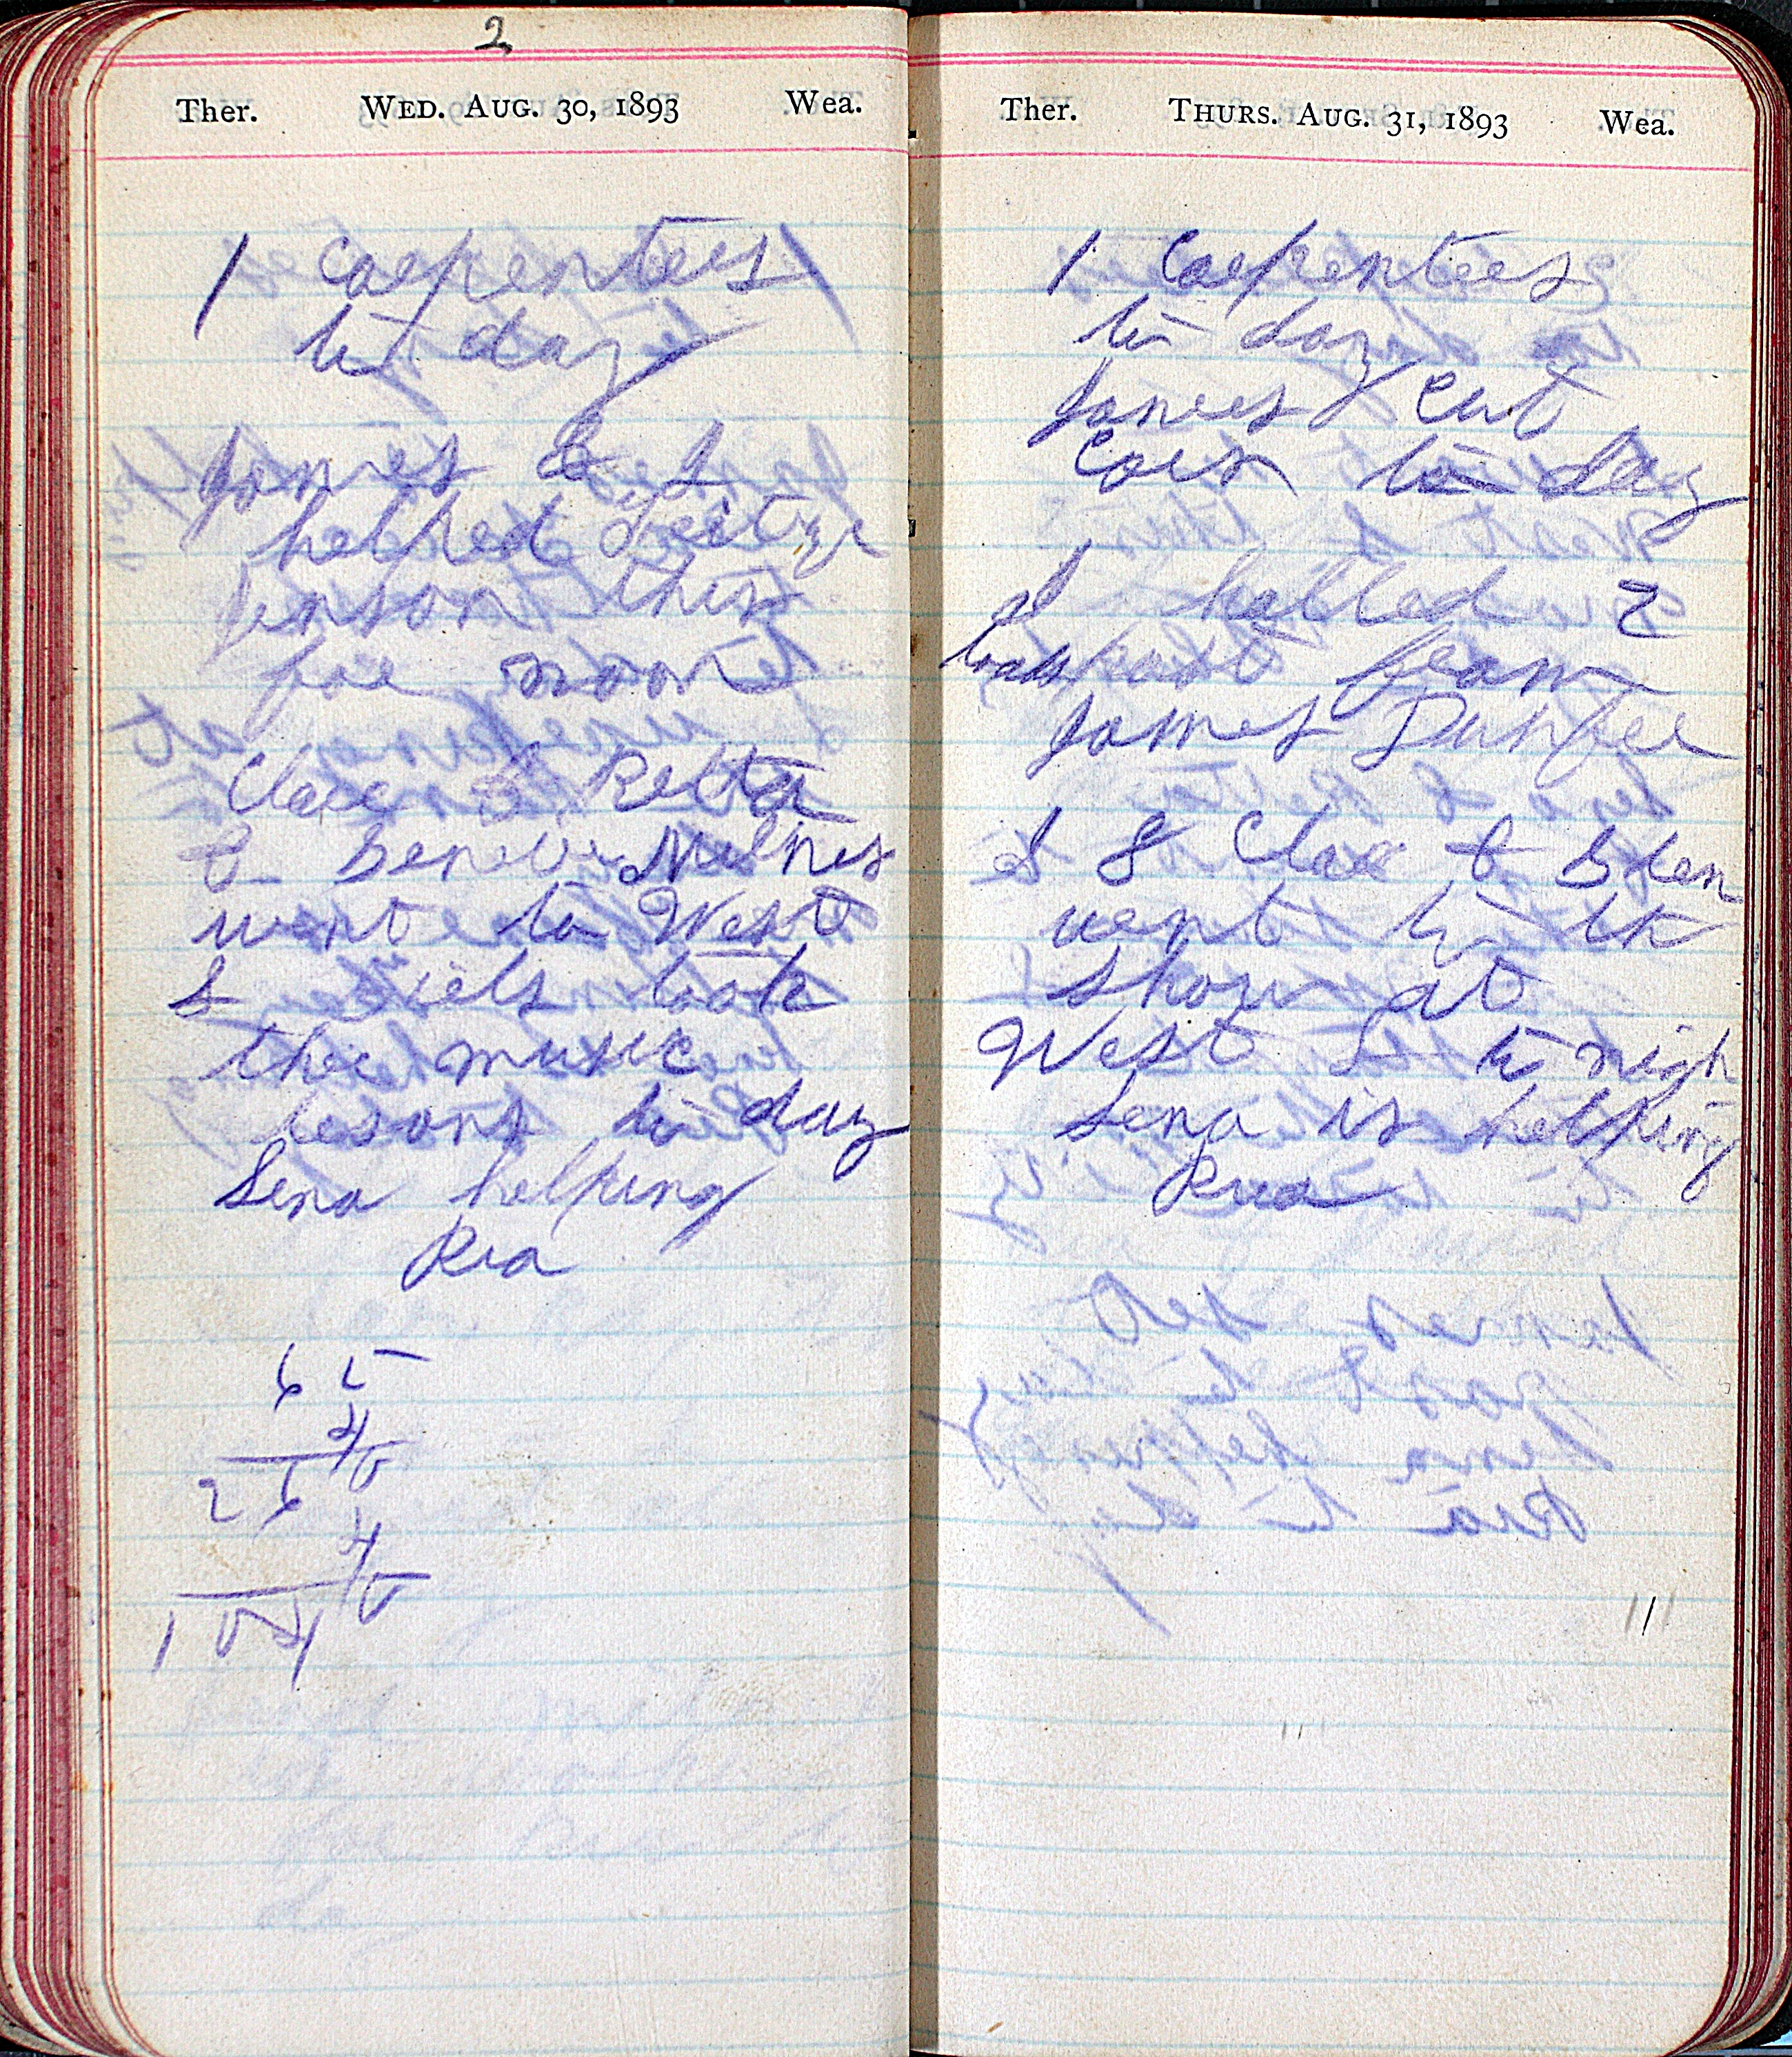 2
Ther. WED. AUG. 30, 1893 Wea.
1 Carpenters
to day
James & I
helped
Jenson this
for noon
Clair & Retta
& Milnes
went to West
& Girls took
ther music
lesons to day
Sena helping
Ria
65
4
260
4
1040
Ther. THURS. AUG. 31, 1893 Wea.
1 Carpenters
to day
James cut
Corn to day
I halled 2
loads from
James Dunfee
I & Clar &
went to th
show at
West L to nigh
Sena is helping
Ria